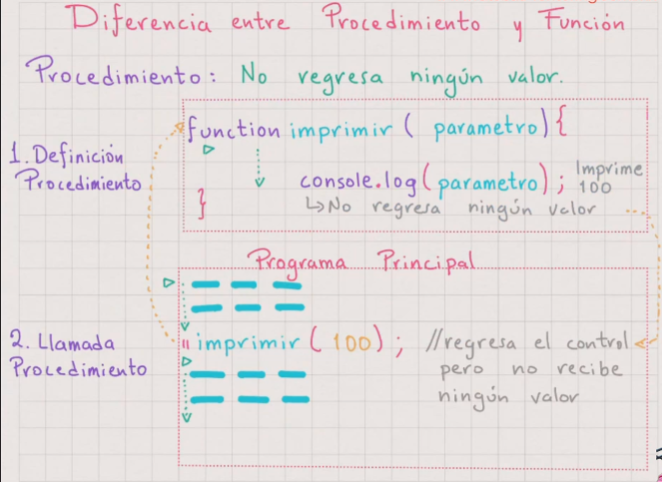 Diferencia entre Procedimiento y Función
Procedimiento: No regresa ningún valor.
1. Definición
Procedimiento
function imprimir ( parametro) {
console.log(parametro); Imprime
100
↳No regresa ningún valor
}
Programa Principal
2. Llamada
Procedimiento
imprimir (100); //regresa el control
pero no recibe
ningún valor